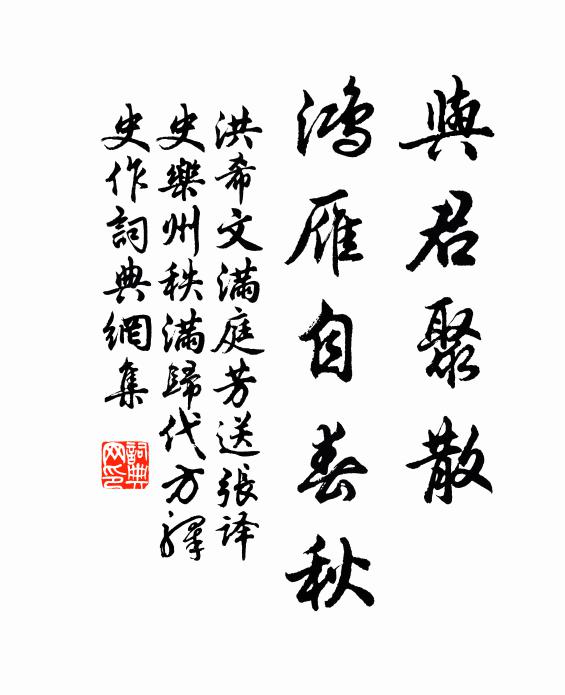 與君聚散
鴻雁自春秋
洪希文滿庭芳送張译
史樂州秩滿歸代方譯
史作詞典網集
詞典
网印